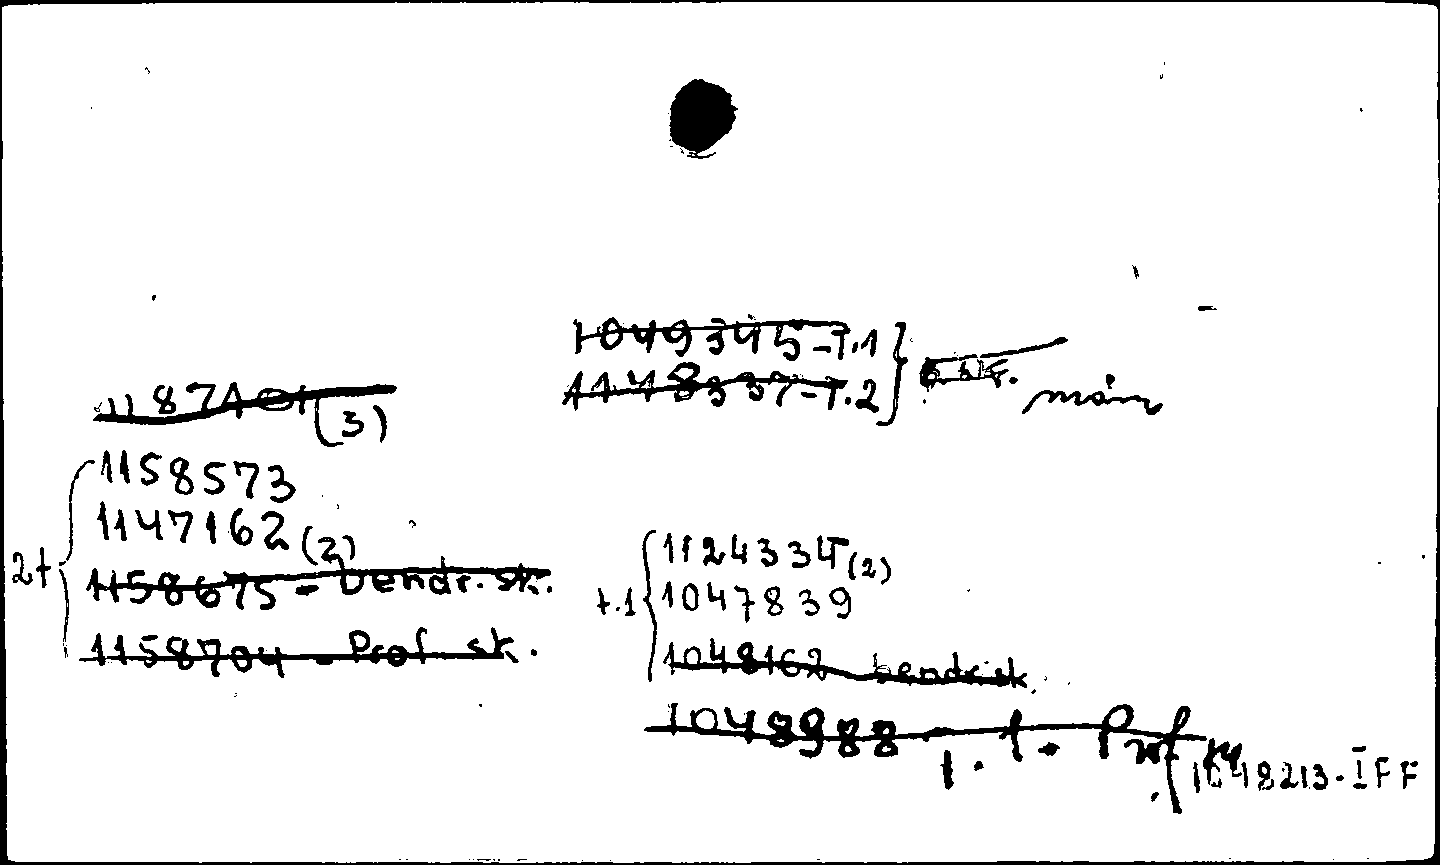 1049345-T.1
1148337-T.2
1187401 (3)
1158573
1147162 (2)
2t
1158675 - bendr. sk.
1158704 - Prof. sk.
1124334 (2)
t.1
1047839
1048162 bendr. sk.
1048988 - T. 1. Prof
1048213 - IFF